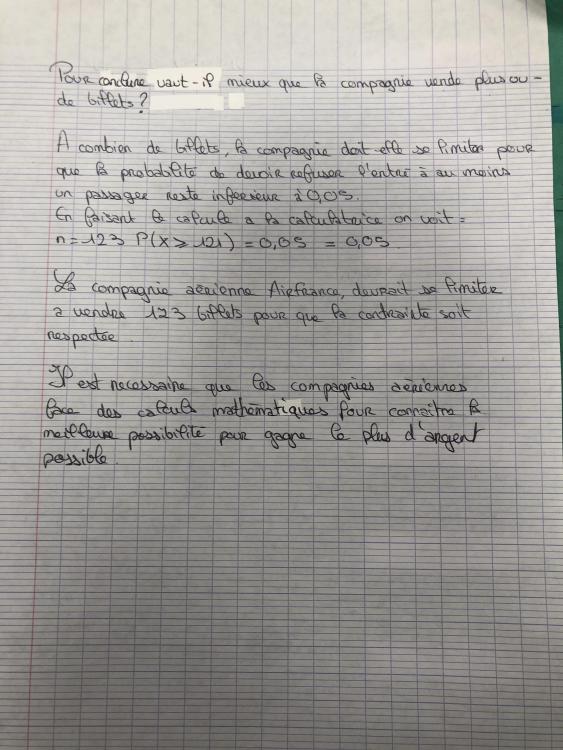 Pour conclure vaut-il mieux que la compagnie vende plus ou -
de billets?
A combien de billets, la compagnie doit-elle se limiter pour
que la probabilité de devoir refuser l'entré à au moins
un passager reste inferieur à 0,05.
En faisant le calcule a la calculatrice on voit =
n = 123 P(X ⩾ 121) = 0,05 = 0,05
La compagnie aérienne Airfrance, devrait se limiter
a vendre 123 billets pour que la contrainte soit
respectée.
Il est necessaire que les compagnies aériennes
face des calculs mathématiques pour connaitre la
meilleure possibilité pour gagne le plus d'argent
possible.